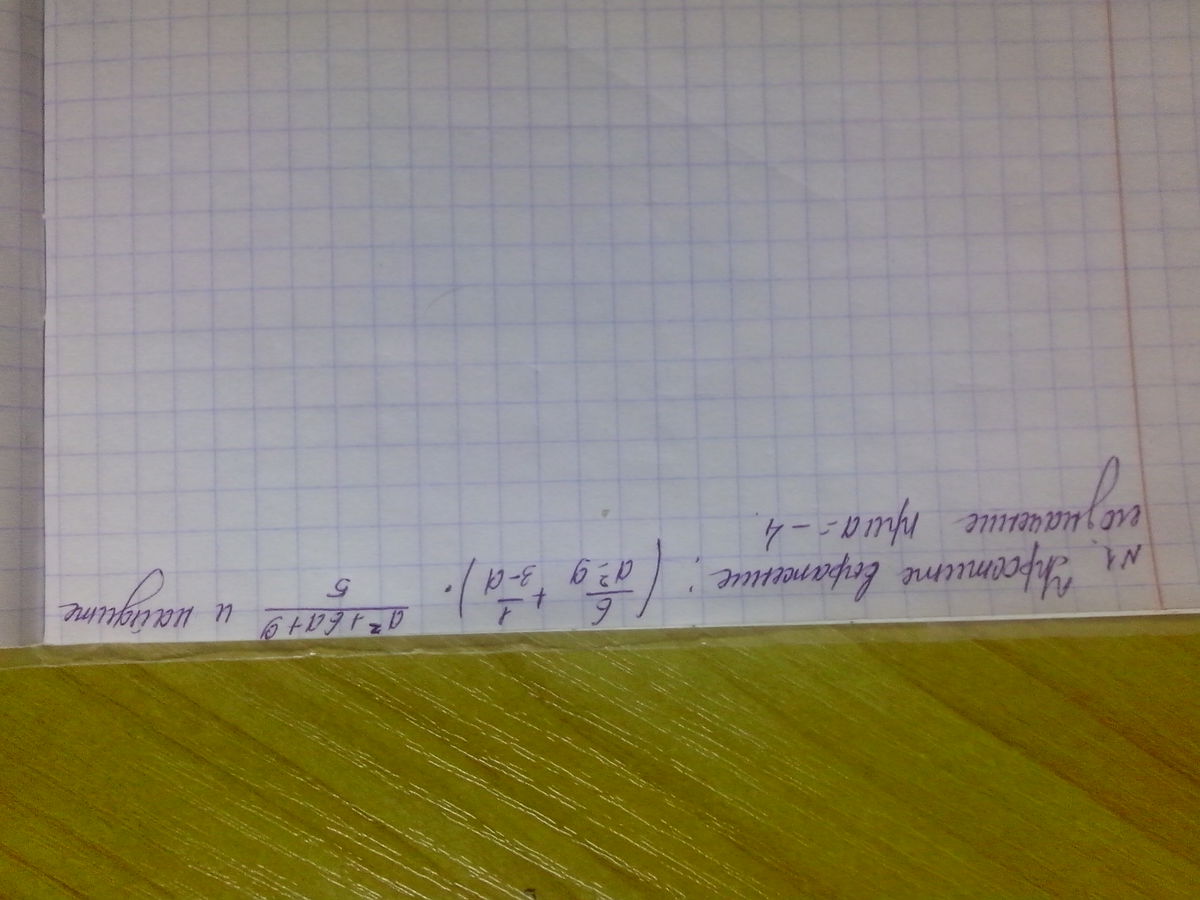 №1. Упростите выражение: (6/(a²-9) + 1/(3-a)) · (a²+6a+9)/5 и найдите
его значение при a = -4